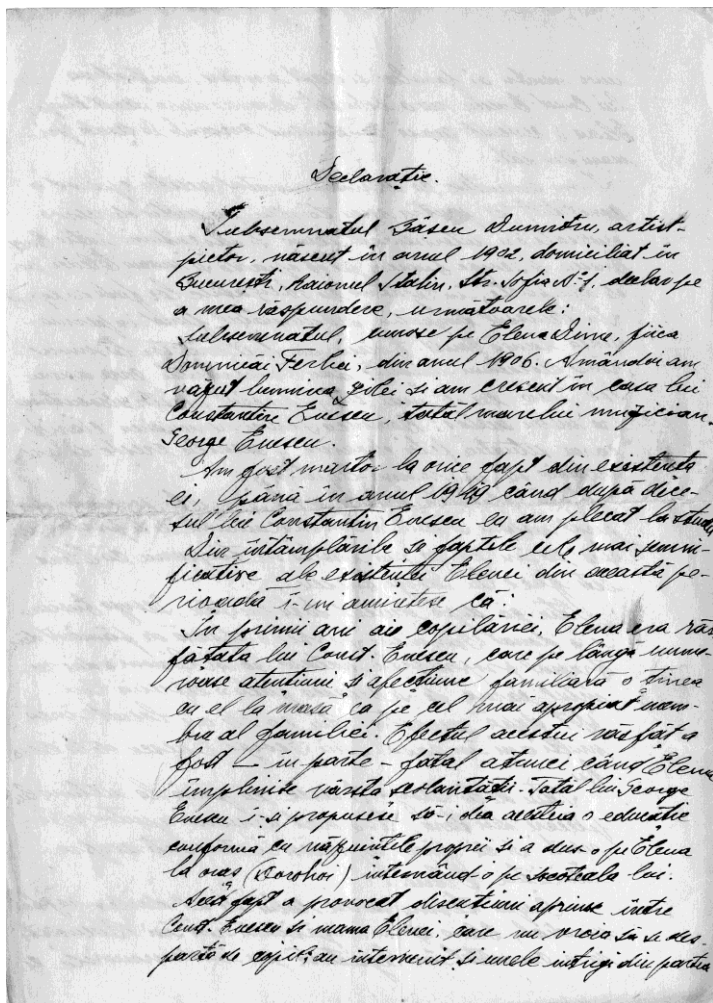 Declarație.
Subsemnatul Bâșcu Dumitru, artist-
pictor, născut în anul 1902, domiciliat în
București, Raionul Stalin, Str. Sofia Nº 1, declar pe
a mea răspundere, următoarele:
Subsemnatul, cunosc pe Elena Dinu, fiica
Domnicăi Ferbei, din anul 1906. Amândoi am
văzut lumina zilei și am crescut în casa lui
Constantin Enescu, tatăl marelui muzician
George Enescu.
Am fost martor la orice fapt din existența
ei, până în anul 1919 când după dece-
sul lui Constantin Enescu eu am plecat la studii
Din întâmplările și faptele cele mai semni-
ficative ale existenței Elenei din această pe-
rioadă î-mi amintesc că:
În primii ani ai copilăriei, Elena era răs-
fățata lui Const. Enescu, care pe lângă nume-
roase atențiuni și afecțiune familiară o ținea
cu el la "masă" ca pe cel mai apropiat mem-
bru al familiei. Efectul acestui răsfăț a
fost – în parte – fatal atunci când Elena
împlinise vârsta școlarității. Tatăl lui George
Enescu î-și propusese să-i dea acesteia o educație
conformă cu năzuințele proprii și a dus-o pe Elena
la oraș (Dorohoi) internând-o pe socoteala lui.
Acest fapt a provocat disentiuni aprinse între
Const. Enescu și mama Elenei, care nu vroia să se des-
partă de copil; au intervenit și unele intrigi din partea